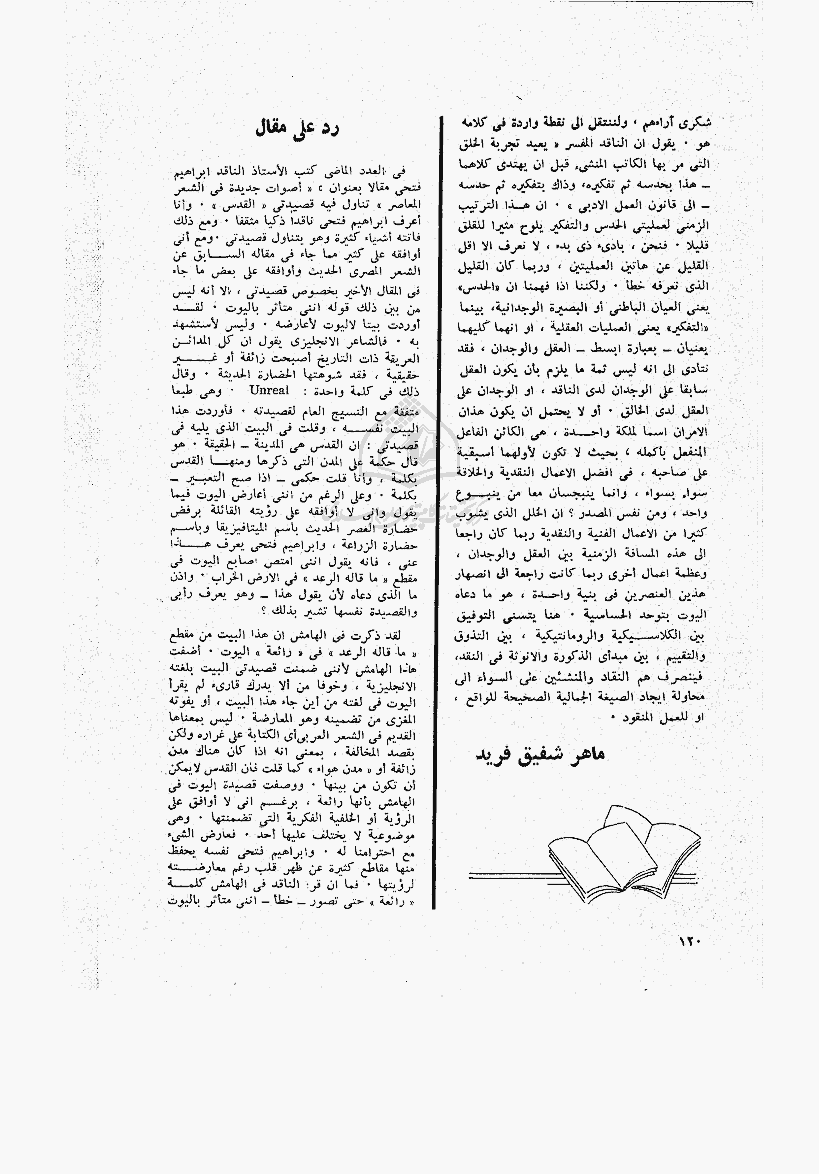 شكرى آراءهم ، ولننتقل الى نقطة واردة فى كلامه
هو ٠ يقول ان الناقد المفسر « يعيد تجربة الخلق
التى مر بها الكاتب المنشىء قبل ان يهتدى كلاهما
ــ هذا بحدسه ثم تفكيره، وذاك بتفكيره ثم حدسه
ــ الى قانون العمل الادبى » ٠ ان هــذا الترتيب
الزمنى لعمليتى الحدس والتفكير يلوح مثيرا للقلق
قليلا ٠ فنحن ، بادىء ذى بدء ، لا نعرف الا اقل
القليل عن هاتين العمليتين ، وربما كان القليل
الذى نعرفه خطأ ٠ ولكننا اذا فهمنا ان «الحدس»
يعنى العيان الباطنى أو البصيرة الوجدانية، بينما
«التفكير» يعنى العمليات العقلية ، او انهما كليهما
يعنيان ــ بعبارة ابسط ــ العقل والوجدان ، فقد
نتادى الى انه ليس ثمة ما يلزم بأن يكون العقل
سابقا على الوجدان لدى الناقد ، او الوجدان على
العقل لدى الخالق ٠ أو لا يحتمل ان يكون هذان
الامران اسما لملكة واحــدة ، هى الكائن الفاعل
المنفعل بأكمله ، بحيث لا تكون لأولهما أسبقية
على صاحبه ، فى افضل الاعمال النقدية والخلاقة
سواء بسواء ، وانما ينبجسان معا من ينبــوع
واحد ، ومن نفس المصدر ؟ ان الخلل الذى يشوب
كثيرا من الاعمال الفنية والنقدية ربما كان راجعا
الى هذه المسافة الزمنية بين العقل والوجدان ،
وعظمة اعمال أخرى ربما كانت راجعة الى انصهار
هذين العنصرين فى بنية واحــدة ، هو ما دعاه
اليوت بتوحد الحساسية ٠ هنا يتسنى التوفيق
بين الكلاســيكية والرومانتيكية ، بين التذوق
والتقييم ، بين مبدأى الذكورة والانوثة فى النقد،
فينصرف هم النقاد والمنشئين على السواء الى
محاولة ايجاد الصيغة الجمالية الصحيحة للواقع ،
او للعمل المنقود ٠
ماهر شفيق فريد
رد على مقال
فى العدد الماضى كتب الأستاذ الناقد ابراهيم
فتحى مقالا بعنوان « أصوات جديدة فى الشعر
المعاصر » تناول فيه قصيدتى « القدس » ٠ وأنا
أعرف ابراهيم فتحى ناقدا ذكيا مثقفا ٠ ومع ذلك
فاتته أشياء كثيرة وهو يتناول قصيدتى ٠ومع أنى
أوافقه على كثير مما جاء فى مقاله الســابق عن
الشعر المصرى الحديث وأوافقه على بعض ما جاء
فى المقال الأخير بخصوص قصيدتى ، الا أنه ليس
من بين ذلك قوله اننى متأثر باليوت ٠ لقــد
أوردت بيتا لاليوت لأعارضه ٠ وليس لأستشهد
به ٠ فالشاعر الانجليزى يقول ان كل المدائــن
العريقة ذات التاريخ أصبحت زائفة أو غــــير
حقيقية ، فقد شوهتها الحضارة الحديثة ٠ وقال
ذلك فى كلمة واحدة : Unreal ٠ وهى طبعا
متفقة مع النسيج العام لقصيدته ٠ فأوردت هذا
البيت نفســه ، وقلت فى البيت الذى يليه فى
قصيدتى : ان القدس هى المدينة ــ الحقيقة ٠ هو
قال حكمه على المدن التى ذكرها ومنهــا القدس
بكلمة ، وأنا قلت حكمى ــ اذا صح التعبيــر ــ
بكلمة ٠ وعلى الرغم من اننى أعارض اليوت فيما
يقول وانى لا أوافقه على رؤيته القائلة برفض
حضارة العصر الحديث باسم الميتافيزيقا وباسم
حضارة الزراعة ، وابراهيم فتحى يعرف هــذا
عنى ، فانه يقول اننى امتص أصابع اليوت فى
مقطع « ما قاله الرعد » فى الارض الخراب ٠ واذن
ما الذى دعاه لأن يقول هذا ــ وهو يعرف رأيى
والقصيدة نفسها تشير بذلك ؟
لقد ذكرت فى الهامش ان هذا البيت من مقطع
« ما قاله الرعد » فى « رائعة » اليوت ٠ أضفت
هذا الهامش لأننى ضمنت قصيدتى البيت بلغته
الانجليزية ، وخوفا من ألا يدرك قارىء لم يقرأ
اليوت فى لغته من أين جاء هذا البيت ، أو يفوته
المغزى من تضمينه وهو المعارضة ٠ ليس بمعناها
القديم فى الشعر العربى أى الكتابة على غراره ولكن
بقصد المخالفة ، بمعنى انه اذا كان هناك مدن
زائفة أو « مدن هواء » كما قلت فان القدس لايمكن
أن تكون من بينها ٠ ووصفت قصيدة اليوت فى
الهامش بأنها رائعة ، برغــم انى لا أوافق على
الرؤية أو الخلفية الفكرية التى تضمنتها ٠ وهى
موضوعية لا يختلف عليها أحد ٠ فعارض الشىء
مع احترامنا له ٠ وابراهيم فتحى نفسه يحفظ
منها مقاطع كثيرة عن ظهر قلب رغم معارضــته
لرؤيتها ٠ فما ان قرأ الناقد فى الهامش كلمــة
« رائعة » حتى تصور ــ خطأ ــ اننى متأثر باليوت
١٢٠